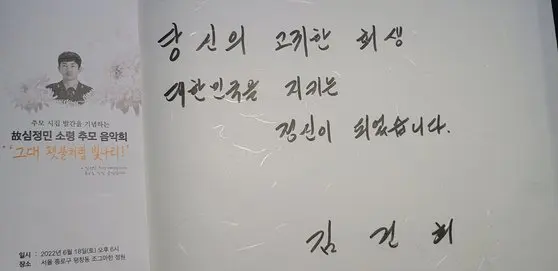 추모 시집 발간을 기념하는
故심정민 소령 추모 음악회
"그대 햇살처럼 빛나리!"
일시 : 2022년 6월 18일(토) 오후 6시
장소 : 서울 종로구 평창동 조그마한 정원
당신의 고귀한 희생
대한민국을 지키는
정신이 되었습니다.
김건희